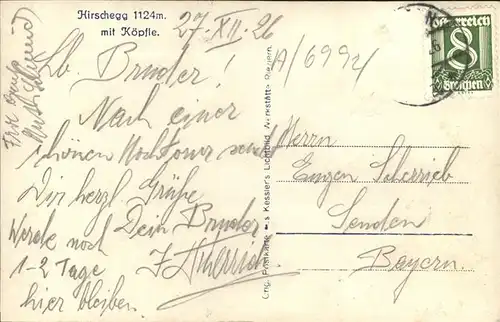 Hirschegg 1124m.
mit Köpfle.
27. XII. 26
Lb. Bruder!
Nach einer
schönen Hochtour sende
Dir herzl. Grüße
Dein Bruder
Werde noch
1-2 Tage
hier bleiben.
A/6992
Österreich
8
Groschen
Herrn
Eugen Scherrieb
Senden
Bayern.
Orig. Postkarte aus Kessler's Lichtbild Werkstätte Riezlern.